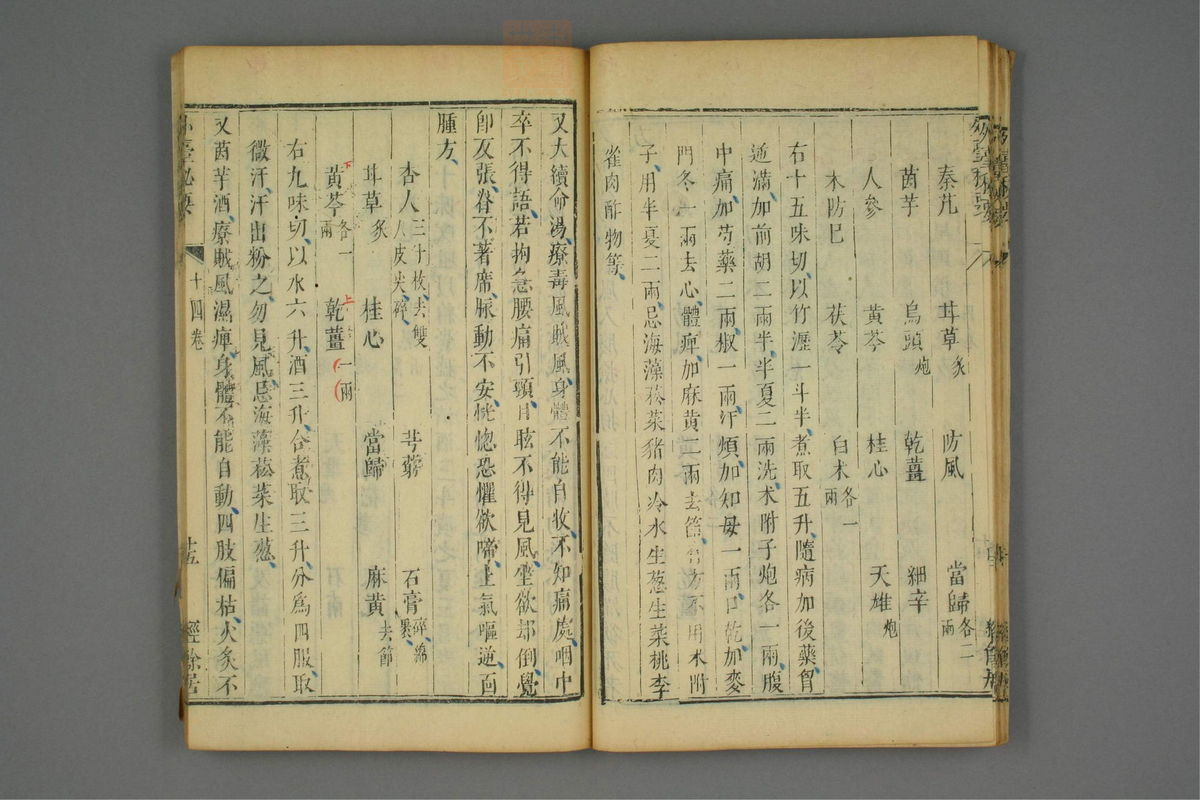 秦艽 甘草炙 防風 當歸各二兩
茵芋 烏頭炮 乾薑 細辛
人參 黃芩 桂心 天雄炮
木防巳 茯苓 白朮各一兩
右十五味切以竹瀝一斗半煮取五升隨病加後藥胷
逆滿加前胡二兩半半夏二兩洗朮附子炮各一兩腹
中痛加芍藥二兩椒一兩汗煩加知母一兩口乾加麥
門冬一兩去心體痺加麻黃二兩去節方不用朮附
子用半夏二兩忌海藻菘菜豬肉冷水生葱生菜桃李
雀肉酢物等
又大續命湯療毒風賊風身體不能自收不知痛處咽中
卒不得語若拘急腰痛引頸目眩不得見風坐欲却倒覺
即反張脊不著席脈動不安恍惚恐懼欲啼上氣嘔逆面
腫方
杏人三十枚去雙人皮尖碎 芎藭 石膏碎綿裹
甘草炙 桂心 當歸 麻黃去節
黃芩各一兩 乾薑一兩
下 上
右九味切以水六升酒三升合煮取三升分爲四服取
微汗汗出粉之勿見風忌海藻菘菜生葱
又茵芋酒療賊風濕痺身體不能自動四肢偏枯火炙不
外臺秘要 十四卷 十五 經餘居